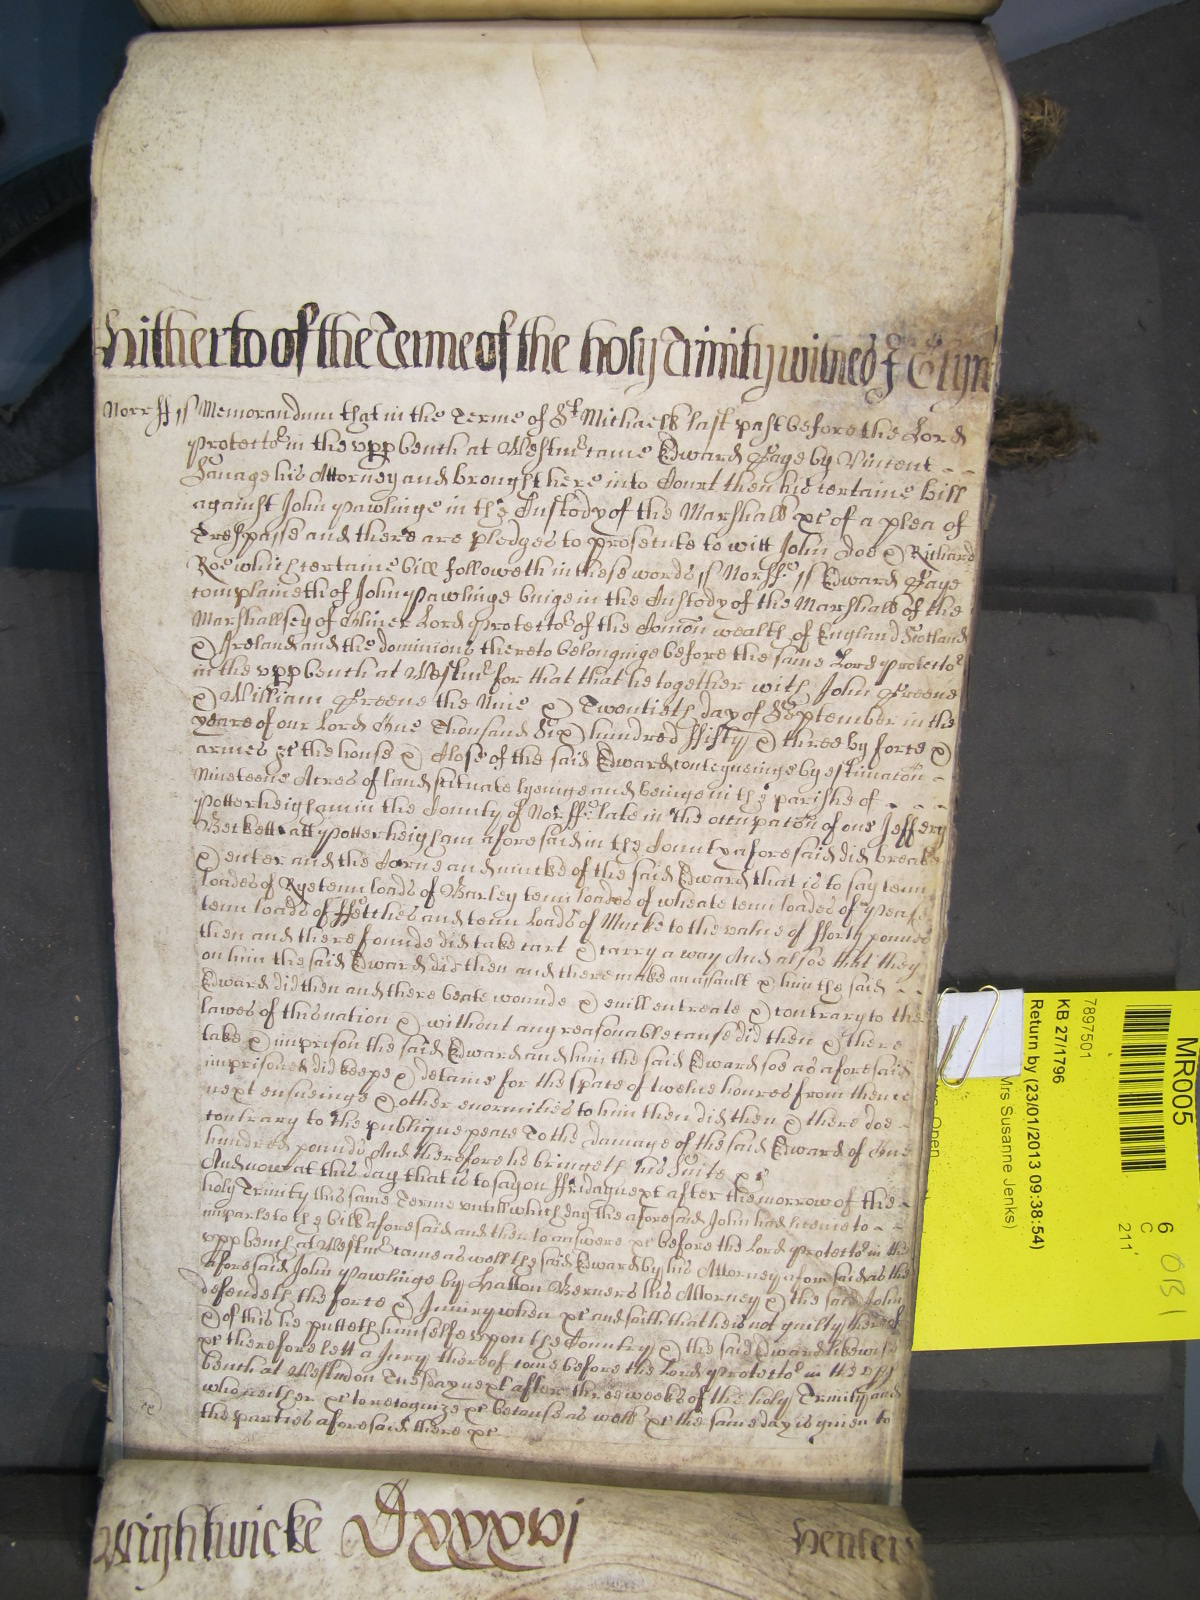 Hitherto of the Terme of the holy Trinity witnes J Glyn
Norff ss Memorandum that in the Terme of St Michaell last past before the Lord
Protector in the vpp bench at Westmr came Edward Gaye by Vincent
Sauage his Attorney and brought here into Court then his certaine bill
against John Pawlinge in the Custody of the Marshall &c of a plea of
Trespasse and there are pledges to prosecute to witt John Doe & Richard
Roe which certaine bill followeth in these words ss Norff ss Edward Gaye
complaineth of John Pawlinge beinge in the Custody of the Marshall of the
Marshallsey of Oliuer Lord Protector of the Comon wealth of England Scotland
& Ireland and the dominions thereto belonginge before the same Lord Protector
in the vpp bench at Westmr for that that he together with John Greene
& William Greene the Nine & Twentieth day of September in the
yeare of our Lord One Thousand Six hundred ffifty & three by force &
armes &c the house & Close of the said Edward conteyneinge by estimacon
Nineteene Acres of land scituate lyeinge and beinge in the parishe of
Potterheigham in the County of Norff late in the occupacon of one Jeffery
Beckett att Potterheigham aforesaid in the County aforesaid did breake
& enter and the Corne and mucke of the said Edward that is to say tenn
loades of Rye tenn loads of Barley tenn loades of wheate tenn loades of Pease
tenn loads of ffetches and tenn loads of Mucke to the value of fforty pounds
then and there founde did take cart & carry a way And alsoe that they
on him the said Edward did then and there make an assault & him the said
Edward did then and there beate wounde & euill entreate & contrary to the
lawes of this nation & without any reasonable cause did then & there
take & imprison the said Edward and him the said Edward soe as aforesaid
imprisoned did keepe & detaine for the space of twelue houres from thence
next ensueinge & other enormities to him then did then & there doe
contrary to the publique peace To the damage of the said Edward of One
hundred pounds And therefore he bringeth his Suite &c
And now at this day that is to say on ffriday next after the morrow of the
holy Trinity this same Terme vntill which day the aforesaid John had licence to
imparle to the bill aforesaid and then to answere &c before the Lord Protector in the
vpp bench at Westmr came as well the said Edward by his Attorney aforesaid as the
aforesaid John Pawlinge by Hatton Berners his Attorney & the said John
defendeth the force & Iniury when &c and saith that he is not guilty thereof
& of this he putteth himselfe vpon the Country & the said Edward likewise
&c therefore lett a Jury thereof come before the Lord Protector in the vpp
bench at Westm on Tuesday next after three weeks of the holy Trinity and
who neither &c to recognize &c because as well &c the same day is giuen to
the parties aforesaid there &c
Wightwicke Dxxxxvi
MR005
6
C
211
OB1
7897501
KB 27/1796
Return by (23/01/2013 09:38:54)
Mrs Susanne Jenks)
Open